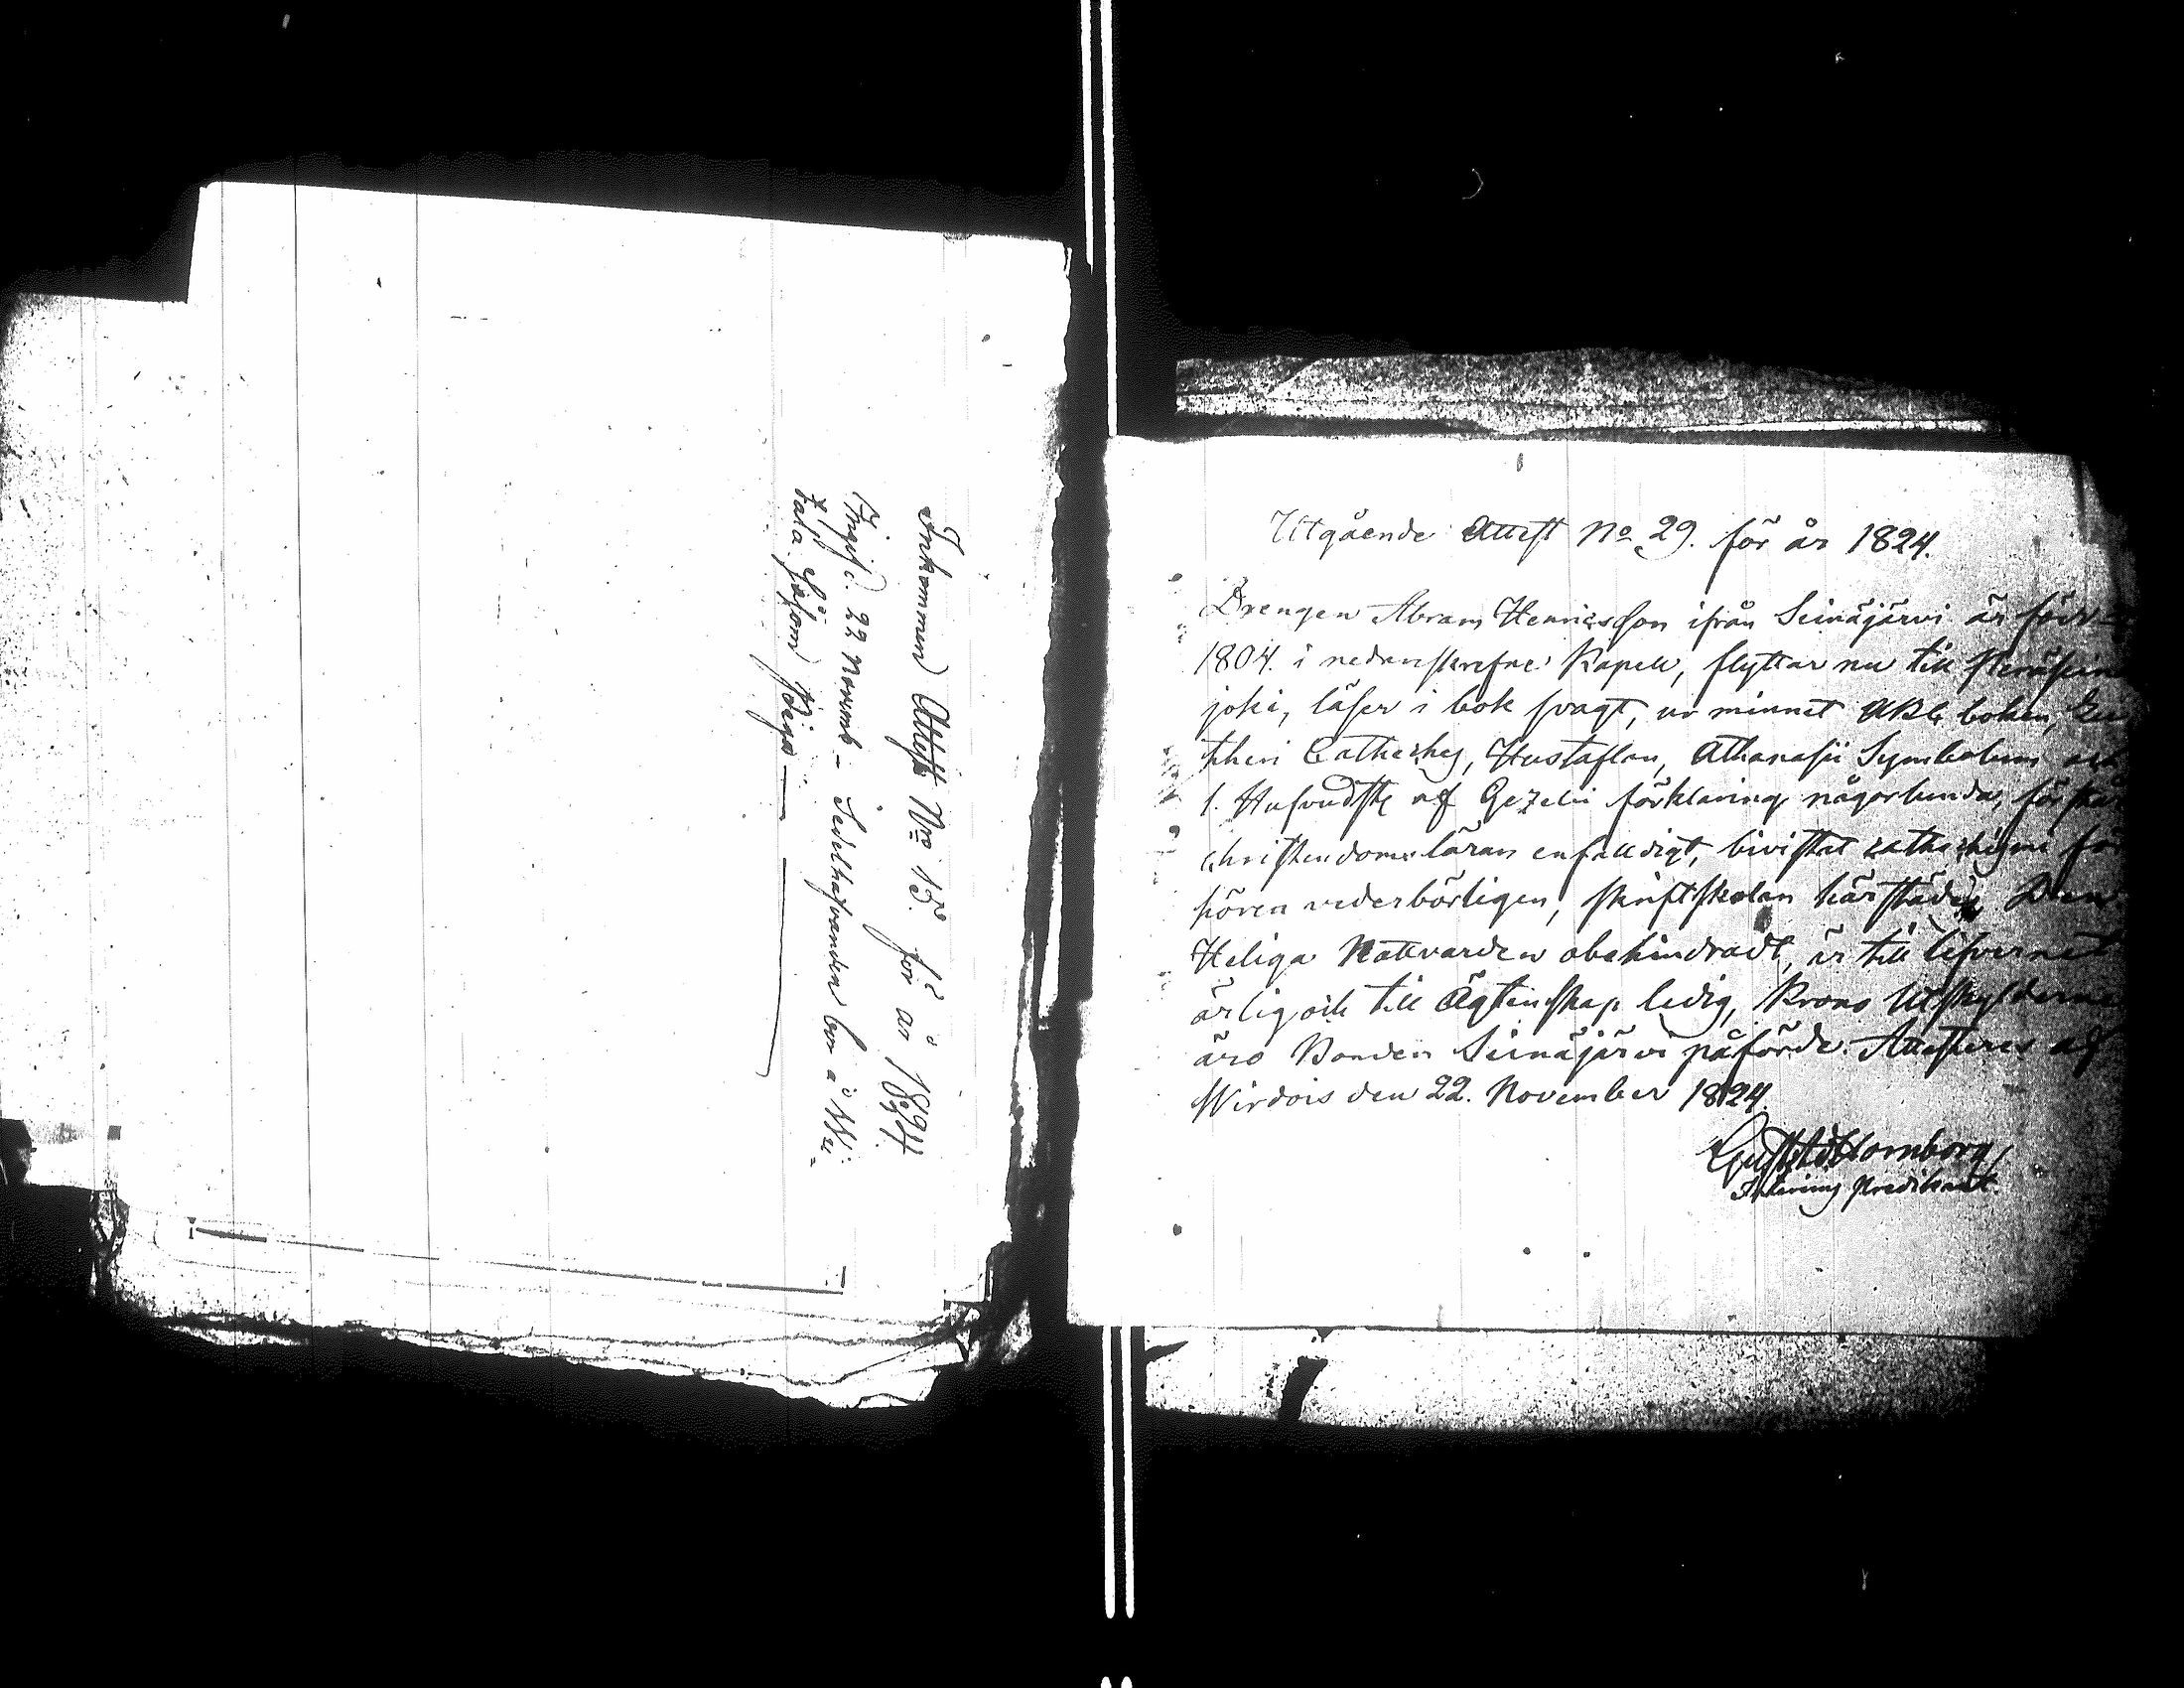 Inkommen Attest No 15. för år 1824
Ingifv. 22 Novemb – Sedelhafvanden bor å We=
tala såsom Piga
Utgående Attest No 29. för år 1824.
Drengen Abram Henricsson ifrån Seinäjärvi är född
1804. i nedanskrefne Kapell, flyttar nu till
joki, läser i bok svagt, ur minnet ABC boken, Lu
theri Cateches, Hustaflan, Athanasii Symbolum och
1. Hufvudst. af Gezelii förklaring någorlunda, förstår
christendoms läran enfaldigt, bivistat catechismi för
hören vederbörligen, skriftskolan härstädes, Den
Heliga Nattvarden obehindradt, är till lefvernet
ärlig och till Ägtenskap ledig, Krono Utskylderne
äro Bonden Seinäjärvi påförde. Attesteres af
Wirdois den 22. November 1824
Gust. Ad. Hornborg,
Interims predikant.